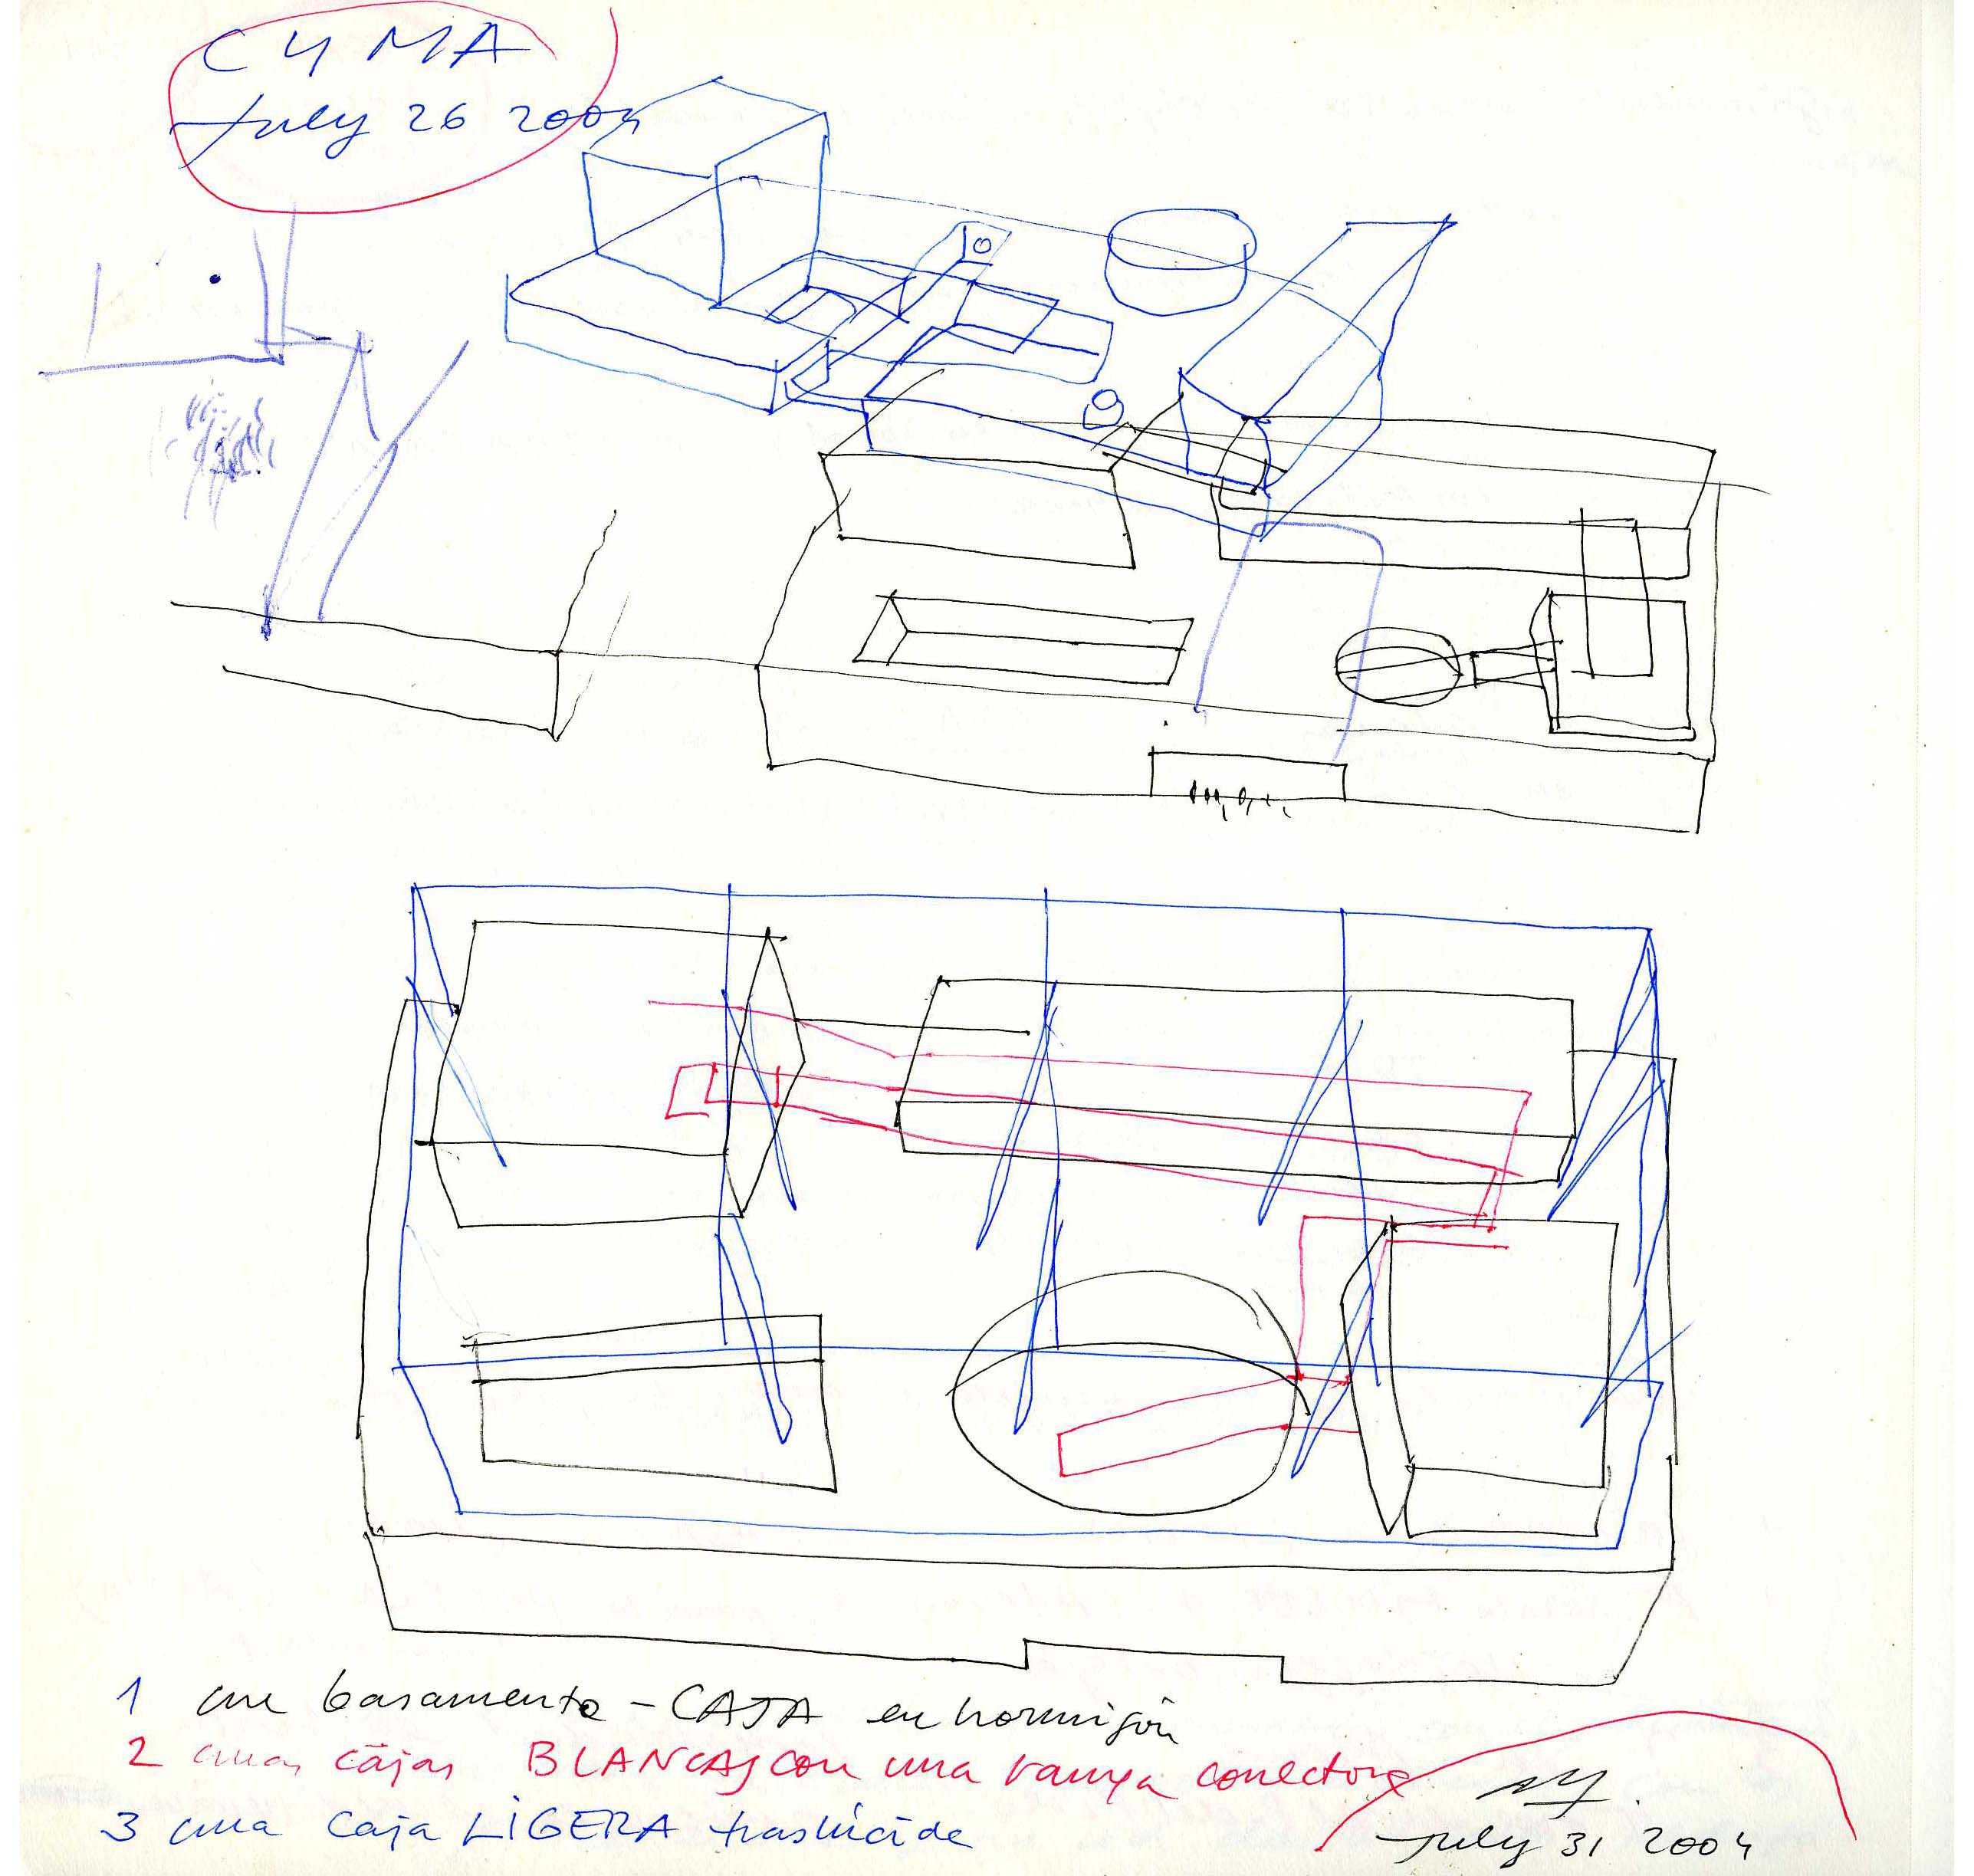 CYMA
July 26 2004
1 un basamento - CAJA en hormigón
2 unas cajas BLANCAS con una rampa conectora
3 una caja LIGERA traslúcida
July 31 2004